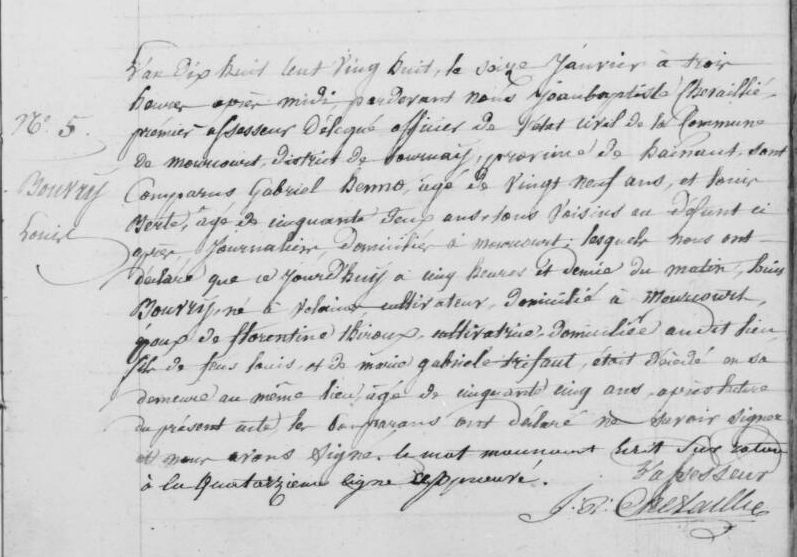 L'an Dix huit Cent Vingt huit, le seize Janvier à trois
heures après midi pardevant nous Jean baptiste Chevaillié,
premier assesseur Délégué officier de l'état civil de la Commune
N° 5.
de mourcourt, district de Tournay, province de hainaut, sont
Comparus Gabriel henno, âgé de Vingt neuf ans, et louis
Bouvry
Louis
Berte, âgé de cinquante deux ans, tous Voisins au défunt ci
après Journalier, domiciliés à mourcourt; lesquels nous ont
déclaré que ce Jourd'huy à cinq heures et demie du matin, louis
Bouvry, né à Velaines cultivateur, domicilié à Mourcourt,
époux de florentine thiroux, cultivatrice, domiciliée au dit lieu
fils de feus louis, et de marie gabriele trifaut, était décédé en sa
demeure au même lieu, âgé de cinquante cinq ans, après lecture
du présent acte les Comparans ont déclaré ne savoir signer
et nous avons Signé. le mot écrit Sur
à la Quatorzieme ligne approuvé.
l'assesseur
J. B. Chevaillié